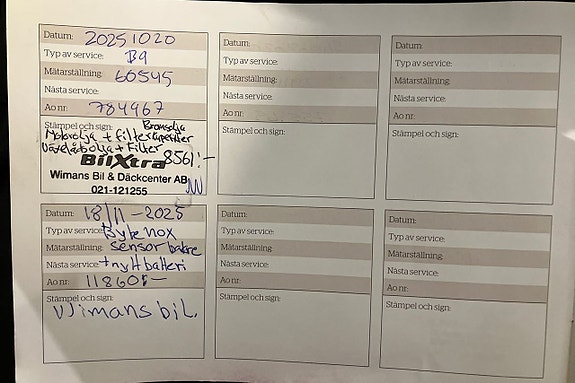 Datum: 20251020
Typ av service: B9
Mätarställning: 60545
Nästa service:
Ao nr: 784967
Stämpel och sign: Bromsolja
Motorolja + filter
Växellådsolja + Filter
BilXtra 8561:-
Wimans Bil & Däckcenter AB
021-121255
Datum:
Typ av service:
Mätarställning:
Nästa service:
Ao nr:
Stämpel och sign:
Datum:
Typ av service:
Mätarställning:
Nästa service:
Ao nr:
Stämpel och sign:
Datum: 18/11-2025
Typ av service: Byte nox
Mätarställning: sensor bakre
Nästa service: + nytt batteri
Ao nr: 11860:-
Stämpel och sign:
Wimans bil.
Datum:
Typ av service:
Mätarställning
Nästa service:
Ao nr:
Stämpel och sign:
Datum:
Typ av service:
Mätarställning:
Nästa service:
Ao nr:
Stämpel och sign: